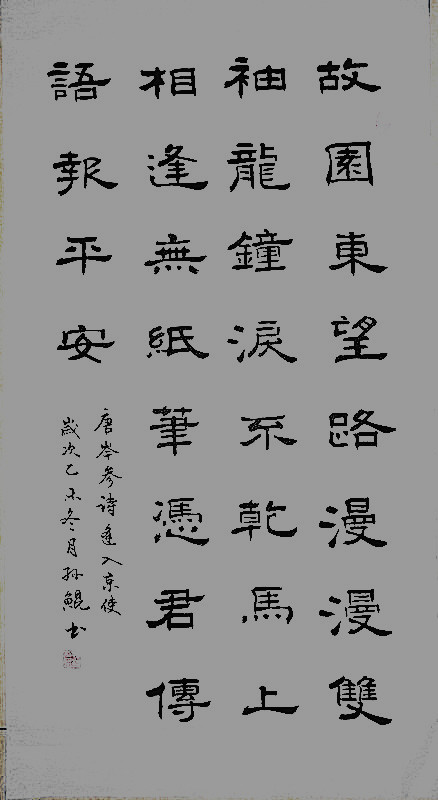 故園東望路漫漫雙
袖龍鐘淚不乾馬上
相逢無紙筆憑君傳
語報平安
唐岑參诗逢入京使
歲次乙未冬月孙鲲书